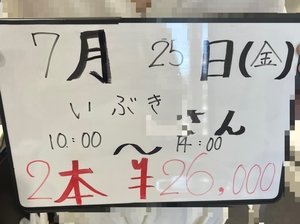 7月 25日(金)
いぶき さん
10:00 〜 14:00
2本 ¥26,000